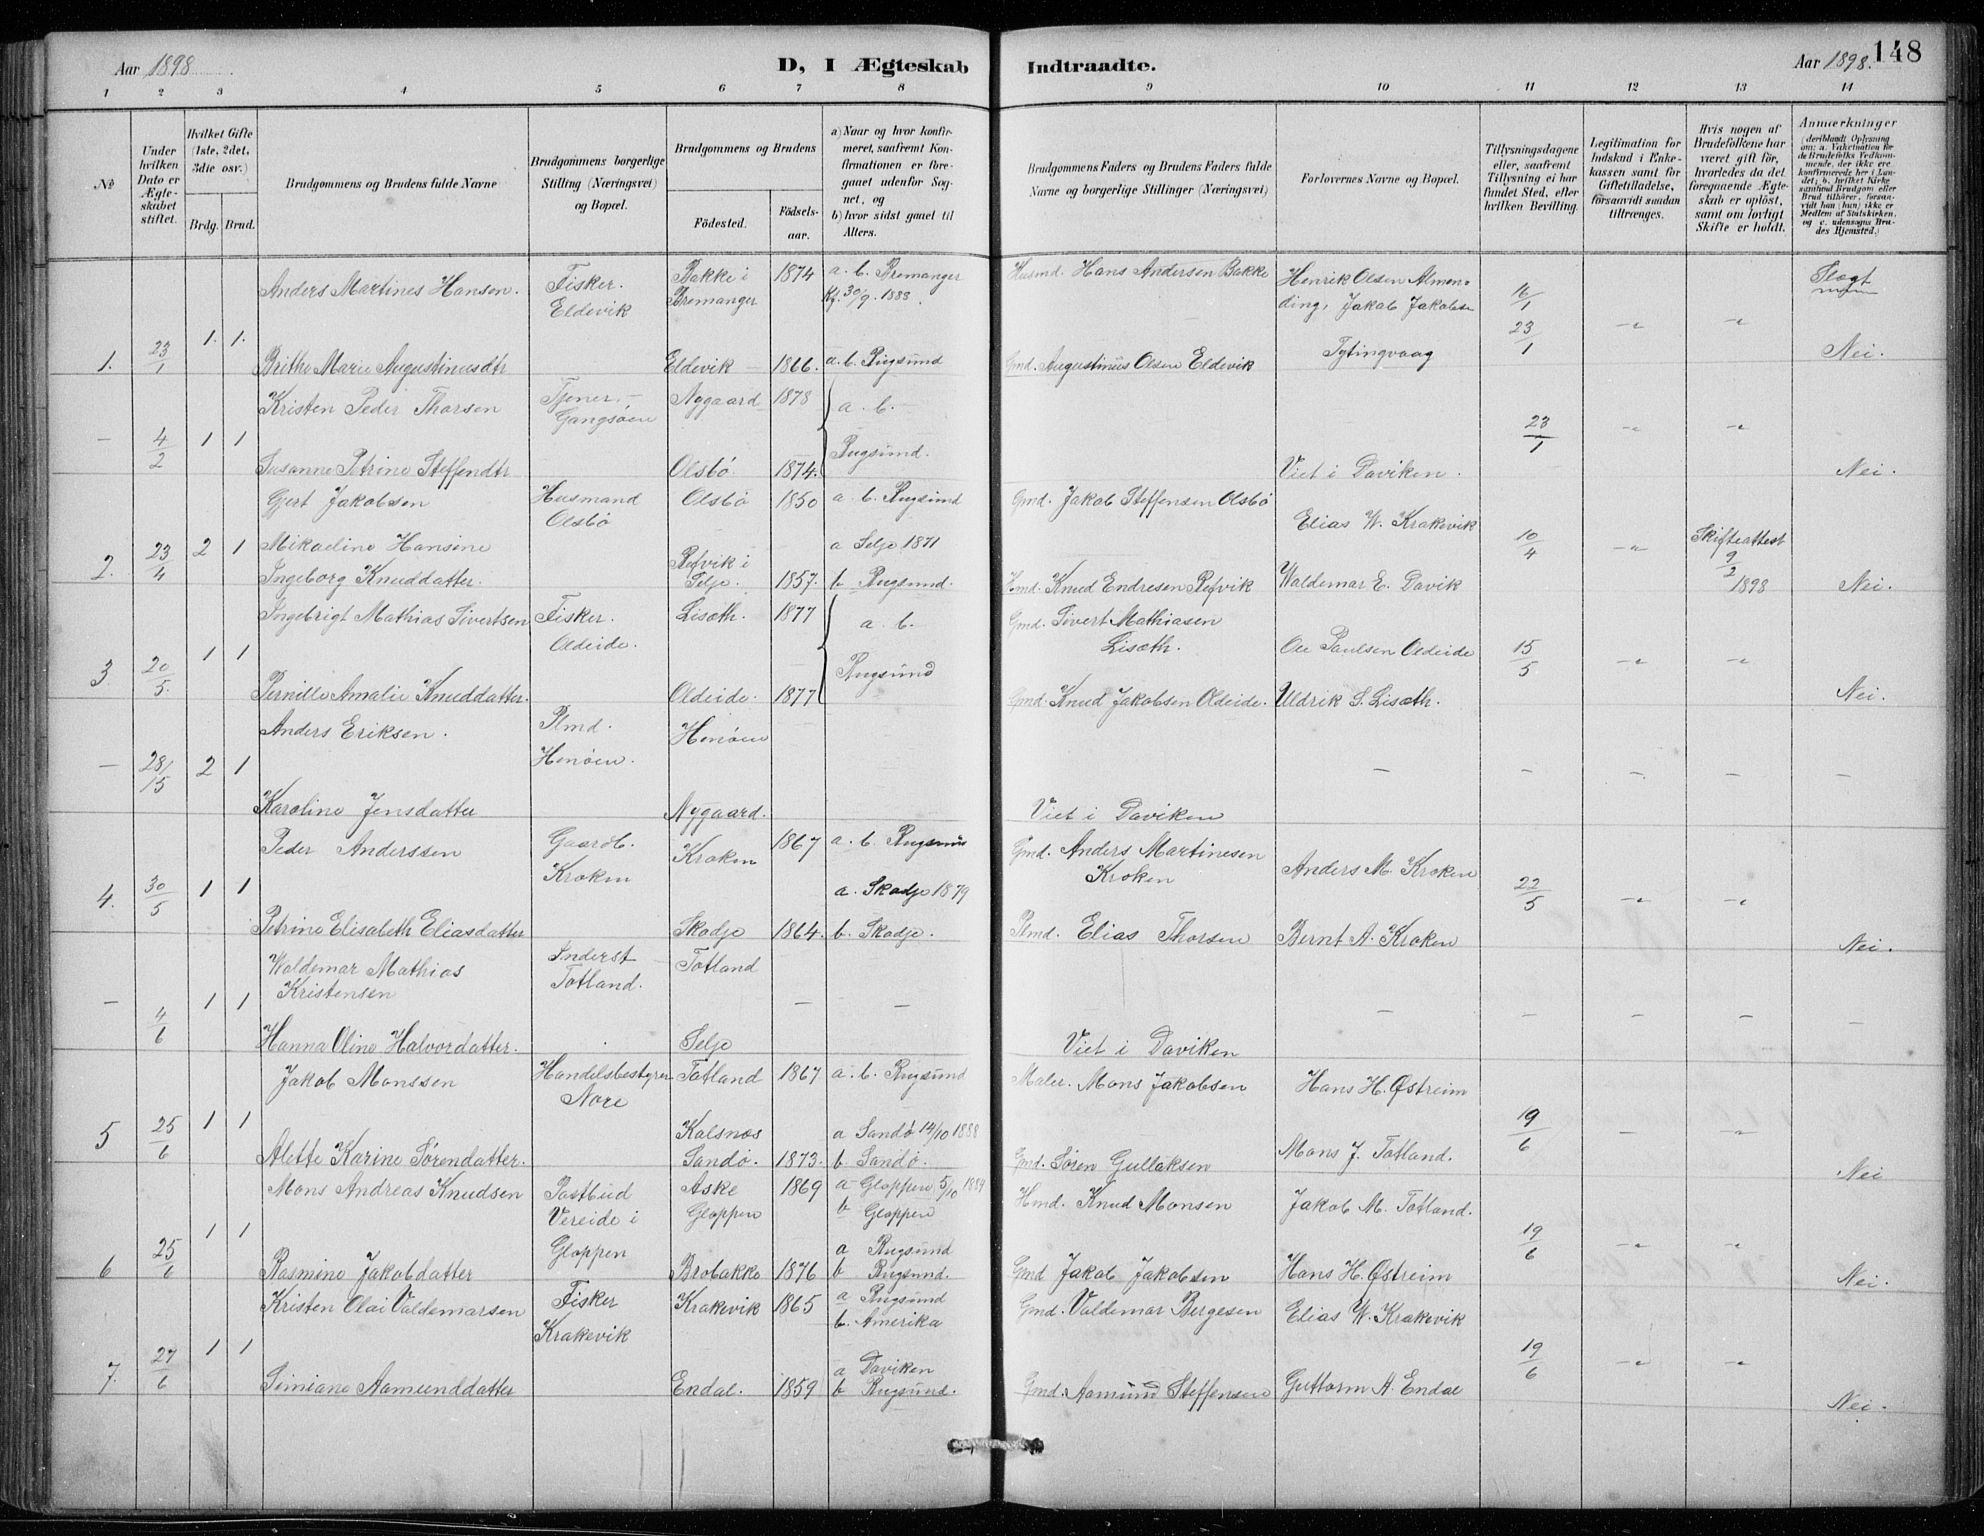 Aar 1898
D, I Ægteskab
Indtraadte.
Aar 1898.
148
1 2 3 4 5 6 7 8 9 10 11 12 13 14
No
Under hvilken Dato er Ægteskabet stiftet.
Hvilket Gifte (1ste, 2det, 3die osv.)
Brdg. Brud.
Brudgommens og Brudens fulde Navne
Brudgommens borgerlige Stilling (Næringsvei) og Bopæl.
Brudgommens og Brudens
Födested.
Födsels-aar.
a) Naar og hvor konfirmeret, saafremt Konfirmationen er foregaaet udenfor Sognet, og
b) hvor sidst gaaet til Alters.
Brudgommens Faders og Brudens Faders fulde Navne og borgerlige Stillinger (Næringsvei)
Forlovernes Navne og Bopæl.
Tillysningsdagene eller, saafremt Tillysning ei har fundet Sted, efter hvilken Bevilling.
Legitimation for Indskud i Enkekassen samt for Giftetilladelse, forsaavidt saadan tiltrænges.
Hvis nogen af Brudefolkene har været gift för, hvorledes da det foregaaende Ægteskab er oplöst, samt om lovligt Skifte er holdt.
Anmærkninger
(deriblandt Oplysning om: a. Vakcination for de Brudefolks Vedkommende, der ikke ere konfirmerede her i Landet; b. hvilket Kirkesamfund Brudgom eller Brud tilhører, forsaavidt han (hun) ikke er Medlem af Statskirken, og c. udensogns Brudes Hjemsted.)
Anders Martines Hansen. Fisker. Eldevik Bakke i Bremanger 1874 a. b. Bremanger Kf. 30/9. 1888. Husmd. Hans Andersen Bakke Henrik Olsen Almending, Jakob Jakobsen 16/1 Slegt
1. 23/1 1. 1. Brithe Marie Augustinusdtr Eldevik 1866. a. b. Rugsund Gmd. Augustinus Olsen Eldevik Tytingvaag 23/1 Nei.
Kristen Peder Thorsen Tjener. Gangsöen Nygaard 1878 a. b. Rugsund.
— 4/2 1 1 Susanne Petrine Steffendtr Olsbö. 1874. Viet i Daviken. 23/1 Nei.
Gjert Jakobsen Husmand Olsbö Olsbö 1850 a. b. Rugsund Gmd. Jakob Steffensen Olsbö Elias W. Krakevik
2. 23/4 2 1 Mikaeline Hansine Ingeborg Knuddatter. Refvik i Selje. 1857. a Selje 1871 b Rugsund. Hmd. Knud Endresen Refvik Waldemar E. Davik 10/4 Skifteattest 9/2 1898 Nei.
Ingebrigt Mathias Sivertsen Fisker. Oldeide. Lisæth. 1877 a. b. Rugsund Gmd. Sivert Mathiasen Lisæth. Ole Paulsen Oldeide
3. 20/5. 1 1 Pernille Amalie Knuddatter. Oldeide. 1877 Gmd. Knud Jakobsen Oldeide. Uldrik S. Lisæth. 15/5 Nei.
Anders Eriksen. Plmd. Henöen. Henöen
— 28/15 2 1 Karoline Jensdatter Nygaard. Viet i Daviken
Peder Anderssen Gaardb. Kroken Kroken 1867 a. b. Rugsund Gmd. Anders Martinesen Kroken Anders M. Kroken
4. 30/5 1 1 Petrine Elisabeth Eliasdatter Skodje 1864. a. Skodje 1879 b. Skodje. Plmd. Elias Thorsen Bernt A. Kroken 22/5 Nei.
Waldemar Mathias Kristensen Inderst Totland. Totland
— 4/6 1 1 Hanna Oline Halvordatter. Selje Viet i Daviken
Jakob Monssen Handelsbestyrer Nore Totland 1867 a. b. Rugsund Maler. Mons Jakobsen Hans H. Østreim
5 25/6 1 1 Alette Karine Sørendatter. Kalsnes Sandö. 1873. a Sandö 14/10 1888 b Sandö. Gmd. Søren Gullaksen Mons J. Totland. 19/6 Nei
Mons Andreas Knudsen Postbud Vereide i Gloppen Aske Gloppen 1869 a Gloppen 5/10 1884 b Gloppen Hmd. Knud Monsen Jakob M. Totland.
6 25/6 1 1 Rasmine Jakobdatter Brobakke 1876 a Rugsund b Rugsund. Gmd Jakob Jakobsen Hans H. Østreim 19/6 Nei.
Kristen Olai Valdemarsen Fisker Krakevik Krakevik 1865 a Rugsund b. Amerika Gmd. Valdemar Bergesen Elias W. Krakevik
7. 27/6 1 1 Simiane Aamunddatter Endal. 1859 a Daviken b Rugsund. Gmd. Aamund Steffensen Guttorm A. Endal 19/6 Nei.